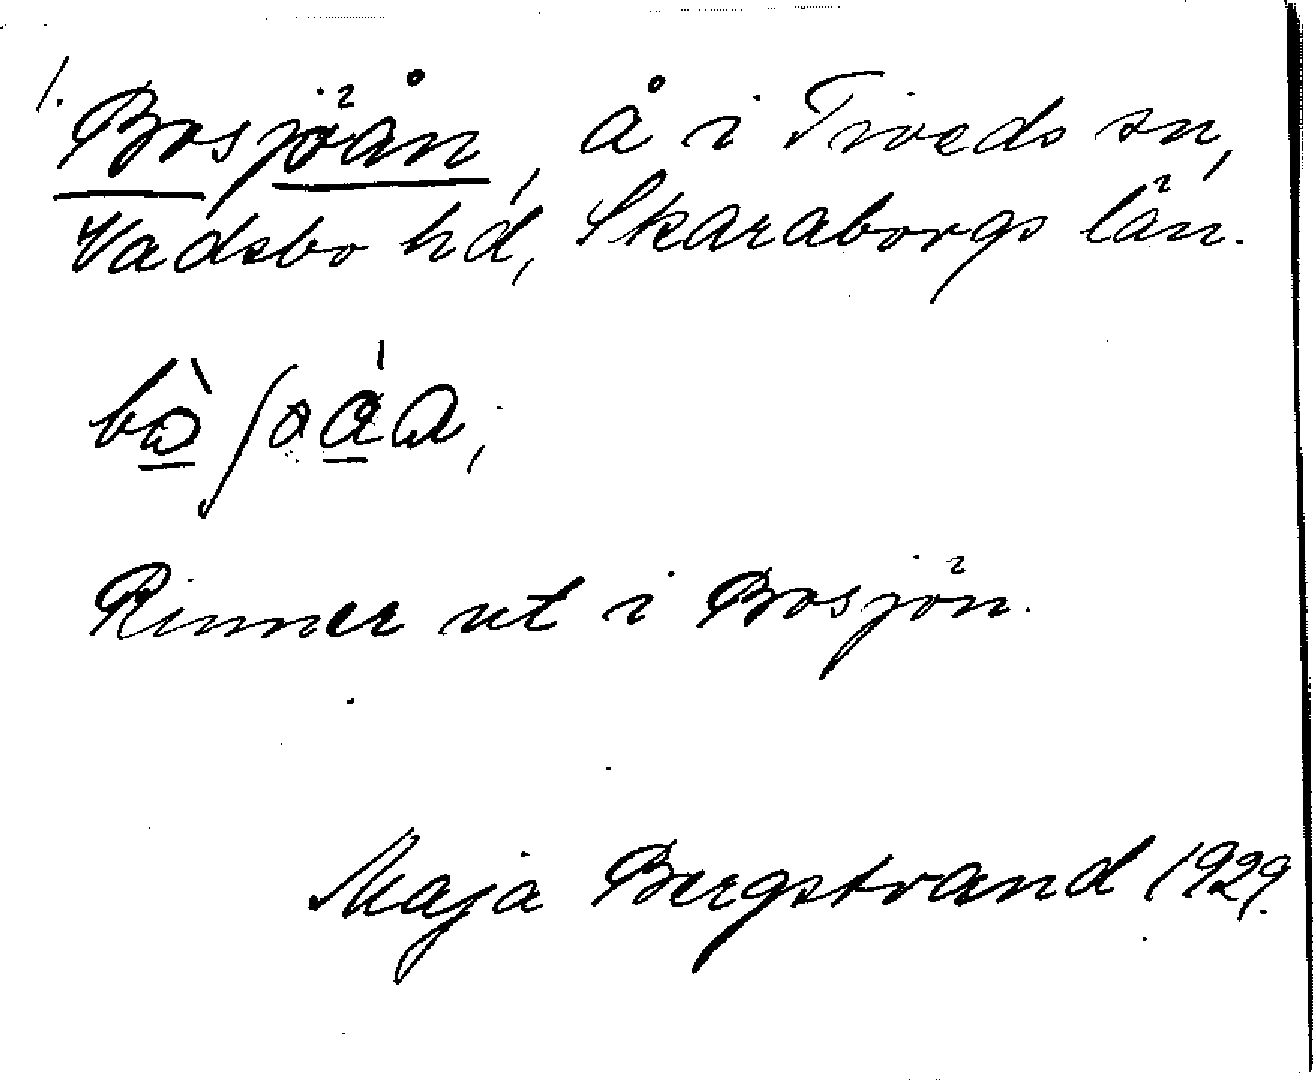 1. Bosjöån, å i Tiveds sn,
Vadsbo hd, Skaraborgs län.
Rinner ut i Bosjön.
Maja Bergstrand 1929.